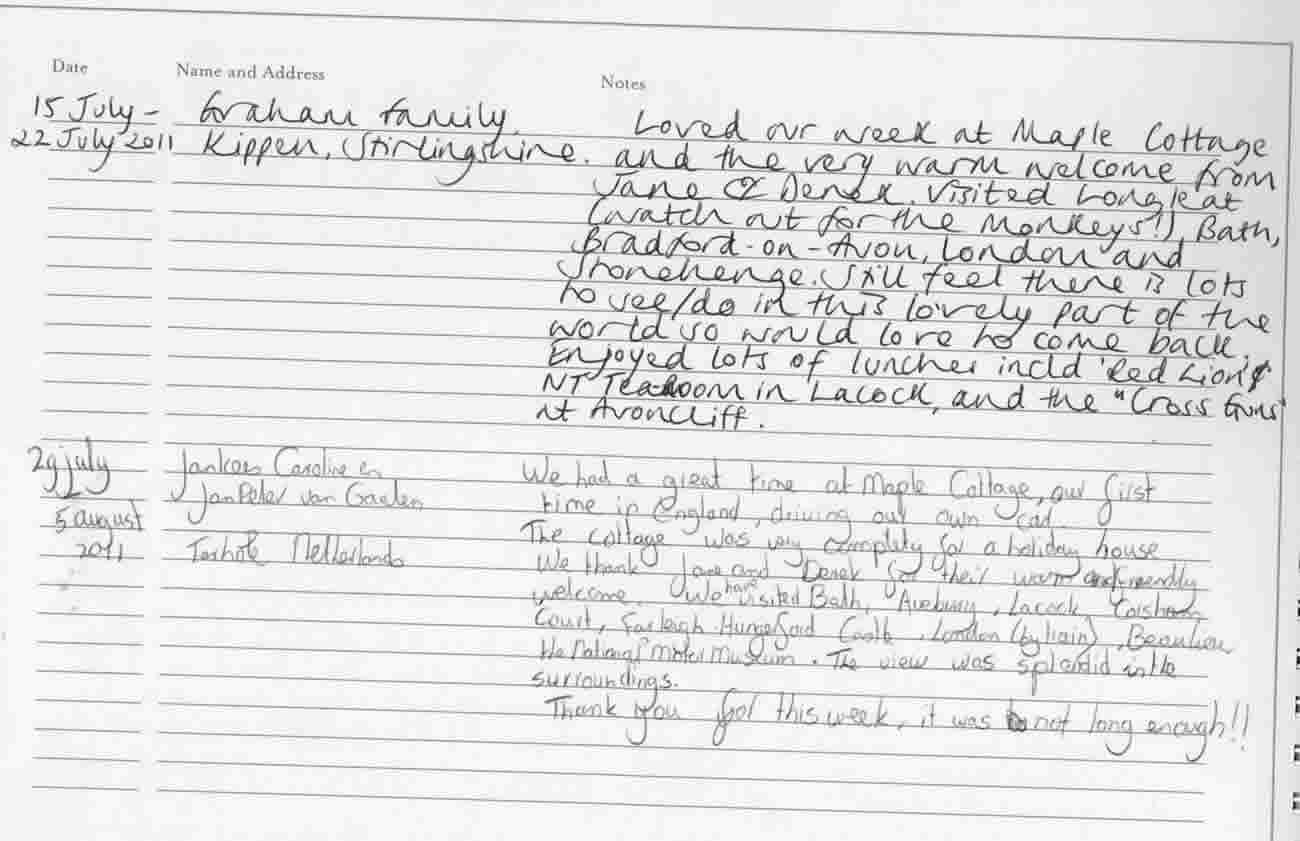 Date Name and Address Notes
15 July - Graham family. Loved our week at Maple Cottage
22 July 2011 Kippen, Stirlingshire. and the very warm welcome from
Jane & Derek. Visited Longleat
(watch out for the Monkeys!), Bath,
Bradford-on-Avon, London and
Stonehenge. Still feel there is lots
to see/do in this lovely part of the
world so would love to come back.
Enjoyed lots of lunches incld 'Red Lion' &
NT Tearoom in Lacock, and the "Cross Guns"
at Avoncliff.
29 july Caroline en We had a great time at Maple Cottage, our first
Jan Peter van time in England, driving our own car.
5 august The cottage was very completly for a holiday house
2011 Netherlands We thank Jane and Derek for their warm and friendly
welcome. We have visited Bath, Avebury, Lacock, Corsham
Court, Farleigh Hungerford Castle, London (by train), Beaulieu
the National Motor Museum. The view was splendid in the
surroundings.
Thank you for this week, it was not long enough!!